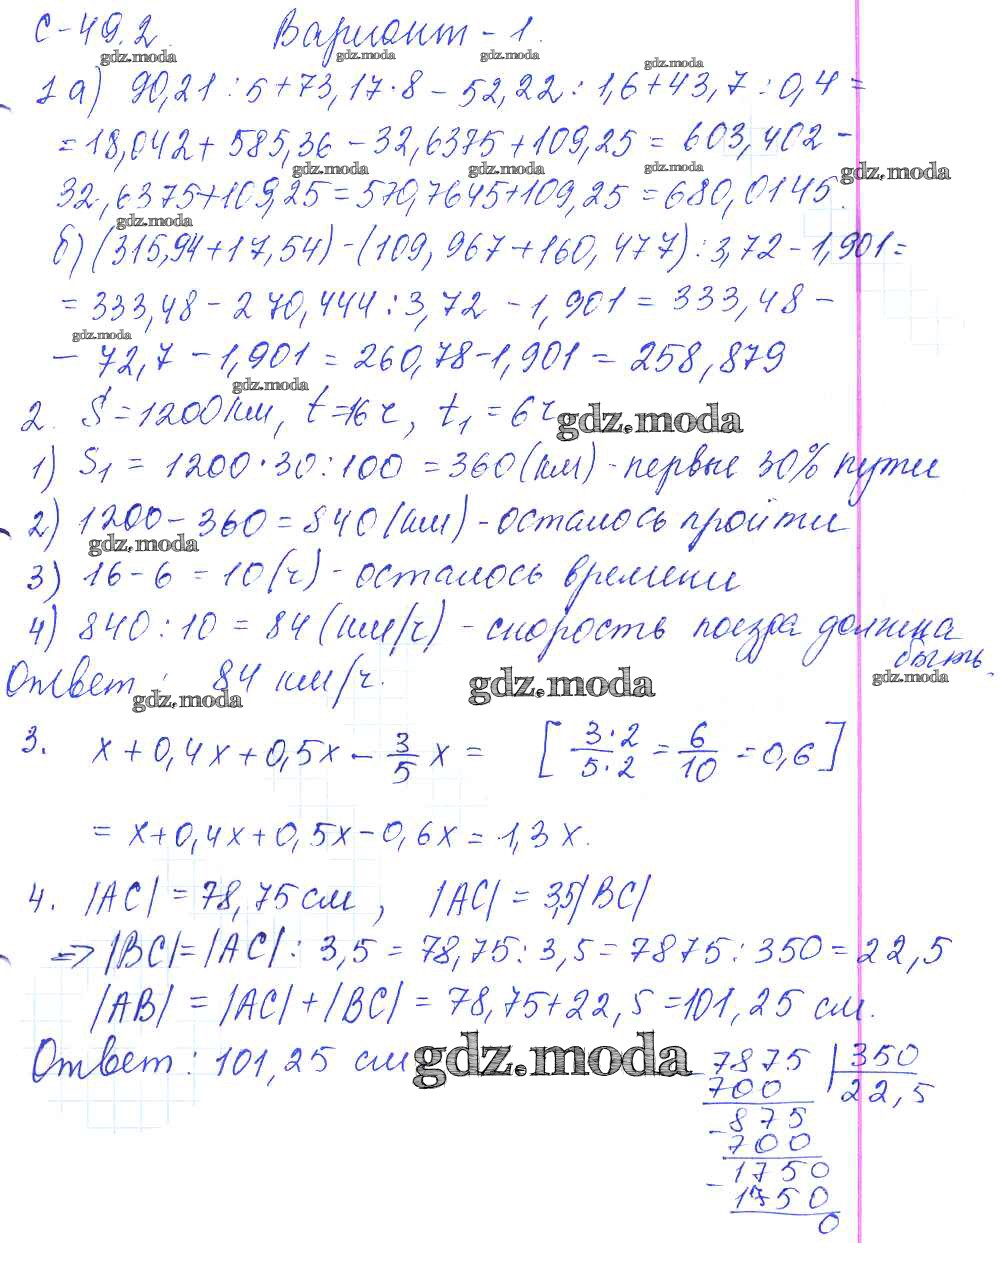 С-49.2. Вариант - 1.
gdz.moda gdz.moda gdz.moda gdz.moda
1 а) 90,21 : 5 + 73,17 · 8 - 52,22 : 1,6 + 43,7 : 0,4 =
= 18,042 + 585,36 - 32,6375 + 109,25 = 603,402 -
gdz.moda gdz.moda gdz.moda gdz.moda
32,6375 + 109,25 = 570,7645 + 109,25 = 680,0145.
gdz.moda
б) (315,94 + 17,54) - (109,967 + 160,477) : 3,72 - 1,901 =
= 333,48 - 270,444 : 3,72 - 1,901 = 333,48 -
gdz.moda
- 72,7 - 1,901 = 260,78 - 1,901 = 258,879
gdz.moda
2. S = 1200 км, t = 16 ч, t₁ = 6 ч
gdz.moda
1) S₁ = 1200 · 30 : 100 = 360 (км) - первые 30% пути
2) 1200 - 360 = 840 (км) - осталось пройти
gdz.moda
3) 16 - 6 = 10 (ч) - осталось времени
4) 840 : 10 = 84 (км/ч) - скорость поезда должна
быть.
Ответ: 84 км/ч.
gdz.moda gdz.moda gdz.moda
3. x + 0,4x + 0,5x - 3/5 x = [3·2/5·2 = 6/10 = 0,6]
= x + 0,4x + 0,5x - 0,6x = 1,3x.
4. |AC| = 78,75 см, |AC| = 3,5|BC|
=> |BC| = |AC| : 3,5 = 78,75 : 3,5 = 7875 : 350 = 22,5
|AB| = |AC| + |BC| = 78,75 + 22,5 = 101,25 см.
Ответ: 101,25 см
gdz.moda
- 7875 | 350
700 22,5
- 875
700
- 1750
1750
0